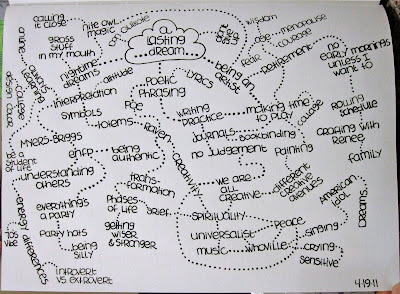 calling it close
nite owl magic
on outside
a lasting dream...
don't give a
wisdom
age - menopause
courage
online
gross stuff in my mouth
nighttime dreams
attitude
poetic phrasing
lyrics
being an artist
fear
retirement
no early mornings unless I want to
always learning
college
design
color
interpretation
symbols
Poe
totems
raven
writing practice
making time to play
collage
rolling schedule
journals
bookbinding
crafting with Renee
no judgement
painting
family
Myers-Briggs
enfp
being authentic
creativity
a good student of life
understanding others
trans-formation
we are all creative
different creative avenues
American Idol
Dreams...
everythings a party
phases of life
grief
spirituality
peace
singing
energy differences
vibe
party hats
getting wiser & stronger
universalist
crying
being silly
music
whoville
sensitive
introvert vs extrovert
4-19-11